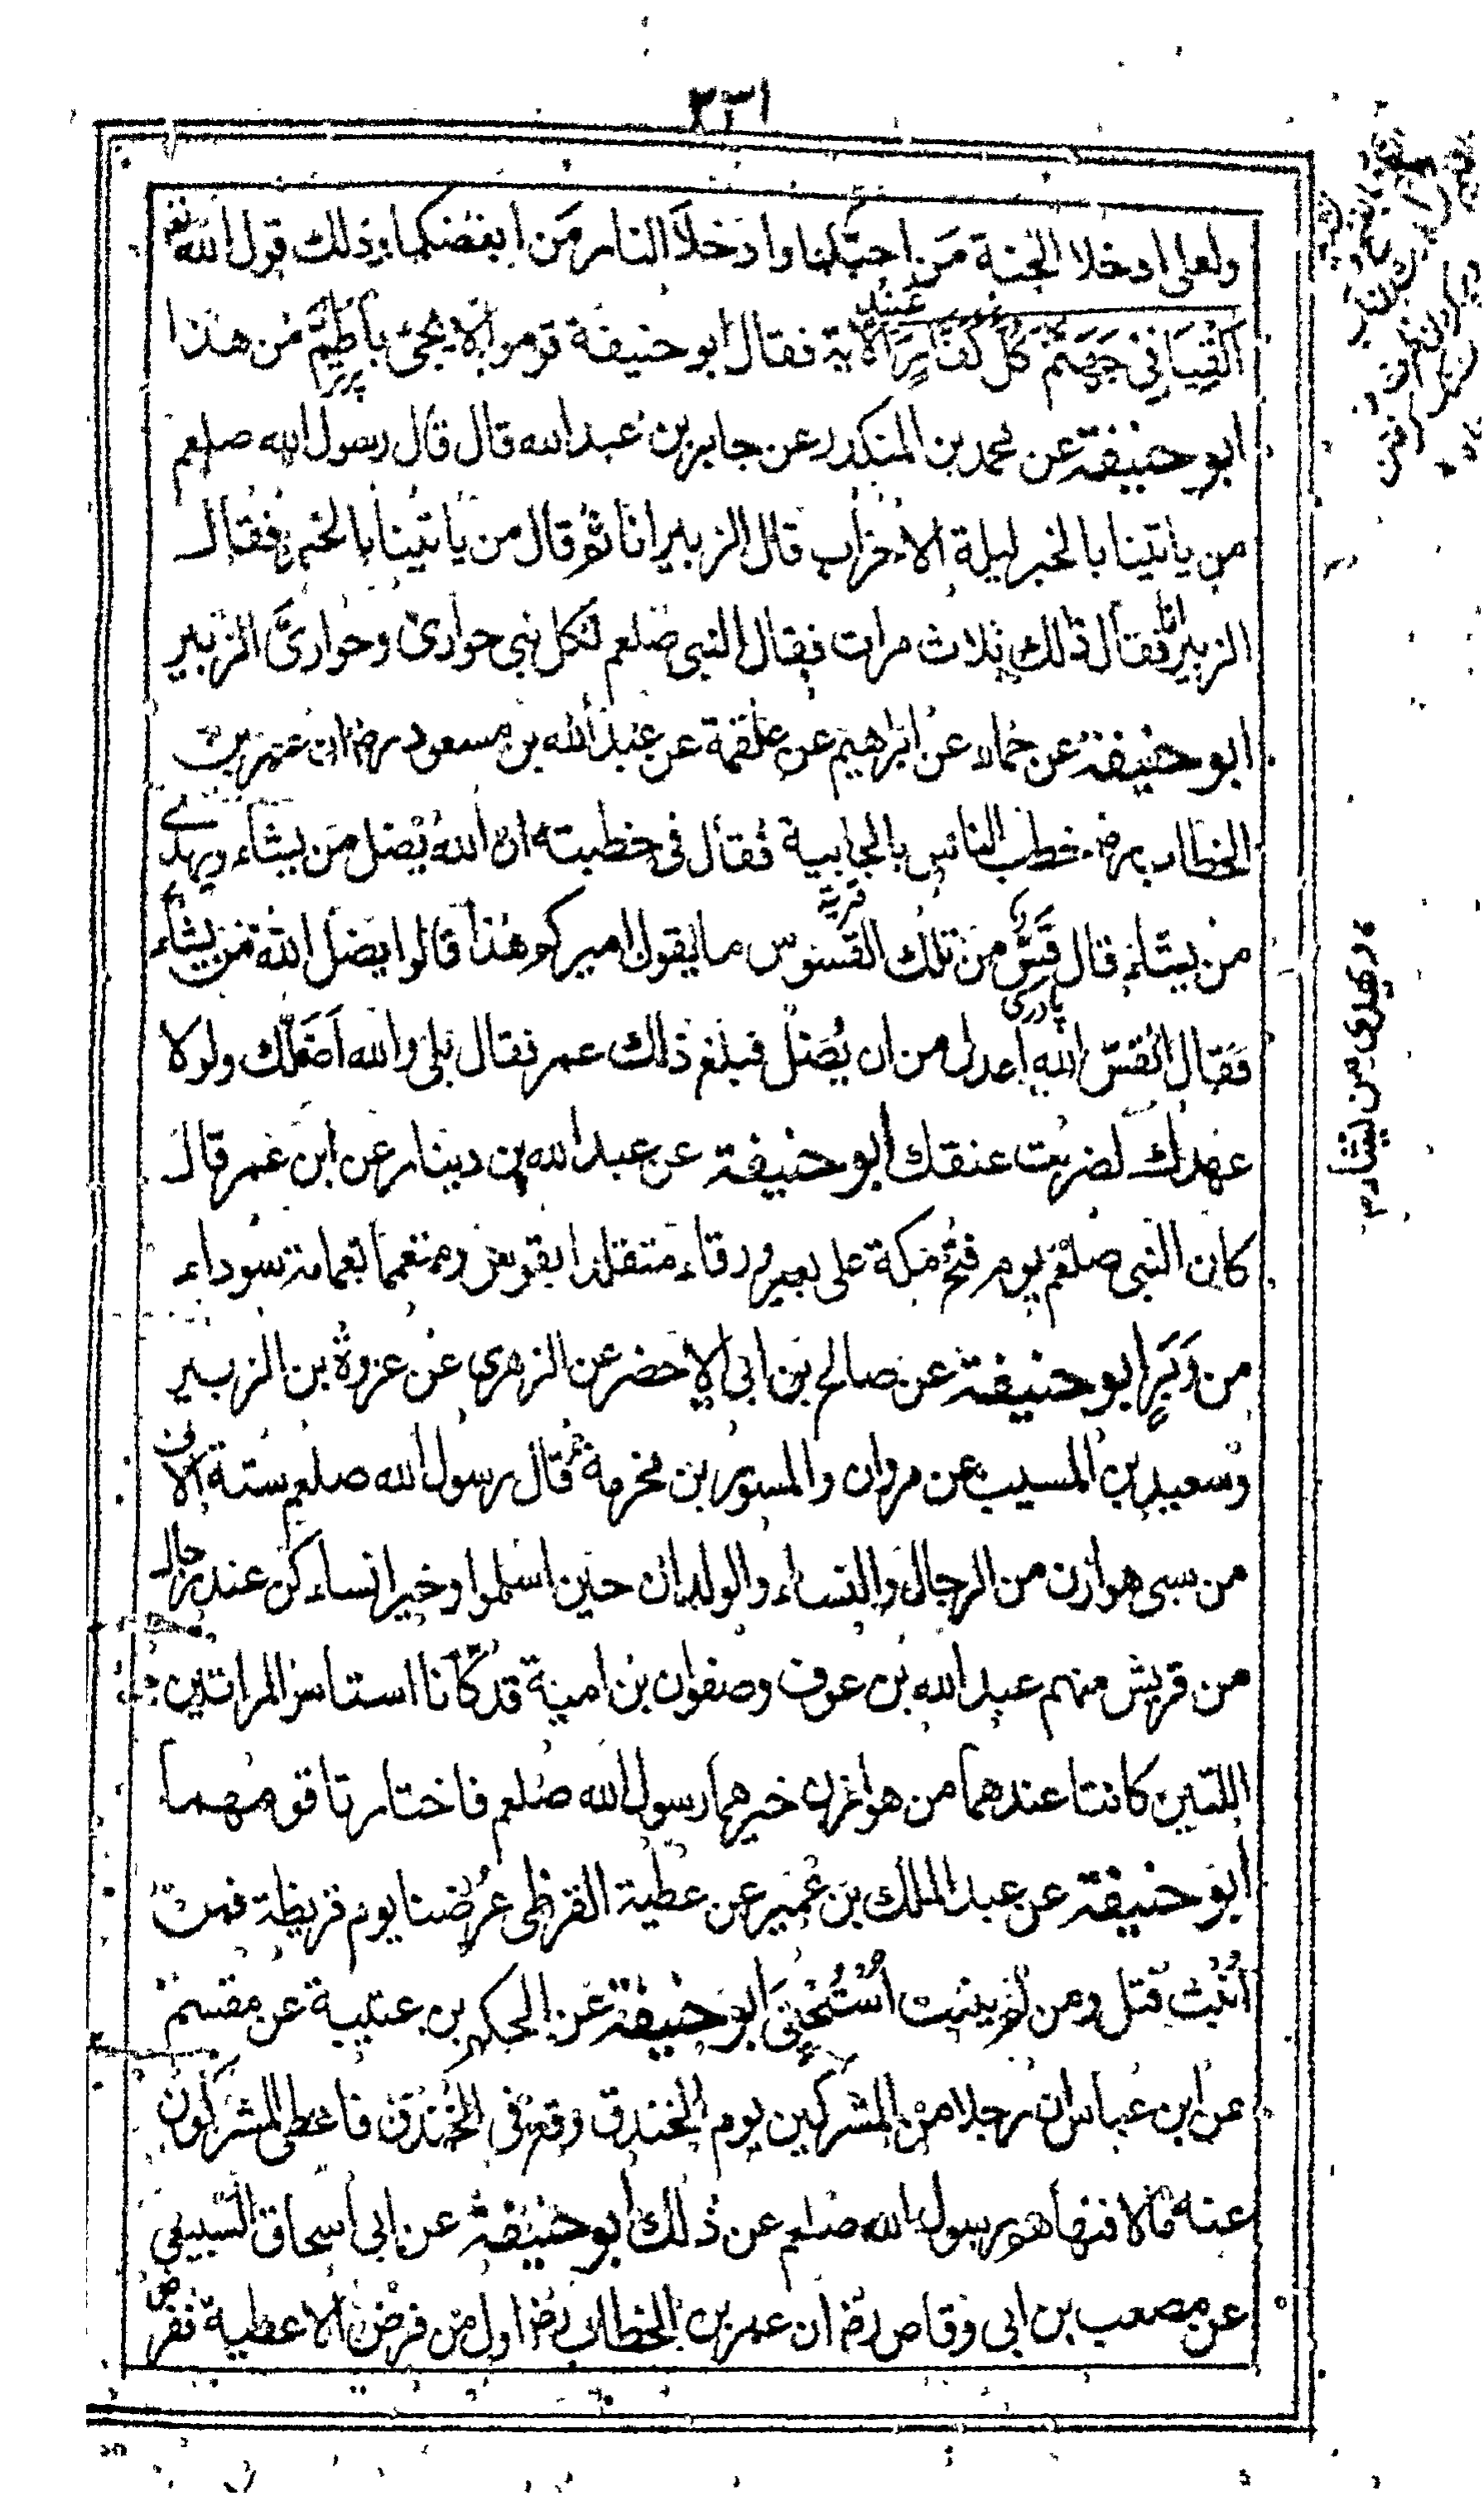 ٣٣١
ولعلى ادخلا الجنة من احبكما وادخلا النار من ابغضكما وذلك قول الله تعم
القيا فى جهنم كل كفار عنيد الآية فقال ابو حنيفة قوموا لا يجئ باطم من هذا
ابو حنيفة عن محمد بن المنكدر عن جابر بن عبد الله قال قال رسول الله صلعم
من ياتينا بالخبر ليلة الاحزاب قال الزبير انا ثم قال من ياتينا بالخبر فقال
الزبير انا فقال ذلك ثلاث مرات فقال النبى صلعم لكل نبى حوارى وحوارىَّ الزبير
ابو حنيفة عن حماد عن ابراهيم عن علقمة عن عبد الله بن مسعود رض ان عمر بن
الخطاب رض خطب الناس بالجابية فقال فى خطبته ان الله يُضل من يشاء ويهدى
قرية
من يشاء قال قَسٌّ من تلك القسوس ما يقول اميركم هذا قالوا يضل الله من يشاء
پادرى
فقال القسّ الله اعدل من ان يُضل فبلغ ذلك عمر فقال بلى والله اَضَلَّك ولولا
عهدك لضربت عنقك ابو حنيفة عن عبد الله بن دينار عن ابن عمر قال
كان النبى صلعم يوم فتح مكة على بعير ورقاء متقلدا بقوس ومتعمما بعمامة سوداء
من وَبَرٍ ابو حنيفة عن صالح بن ابى الاخضر عن الزهرى عن عروة بن الزبير
وسعيد بن المسيب عن مروان والمسور بن مخرمة قال رسول الله صلعم ستة الاف
من سبى هوازن من الرجال والنساء والولدان حين اسلموا وخير انساء كن عند رجال
من قريش منهم عبد الله بن عوف وصفوان بن امية قد كانا استاسرا المراتين
اللتين كانتا عندهما من هوازن خيرهما رسول الله صلعم فاختارتا قومهما
ابو حنيفة عن عبد الملك بن عُمَير عن عطية القرظى عُرضنا يوم قريظة فمن
اَنبت قتل ومن لم ينبت اُستُحيِىَ ابو حنيفة عن الحكم بن عتيبة عن مقسم
عن ابن عباس ان رجلا من المشركين يوم الخندق وقع فى الخندق فاعطى المشركون
عنه مالا فنهاهم رسول الله صلعم عن ذلك ابو حنيفة عن ابى اسحاق السبيعى
عن مصعب بن ابى وقاص رض ان عمر بن الخطاب رض اول من فرض الاعطية ففرض